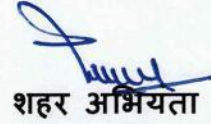 शहर अभियता